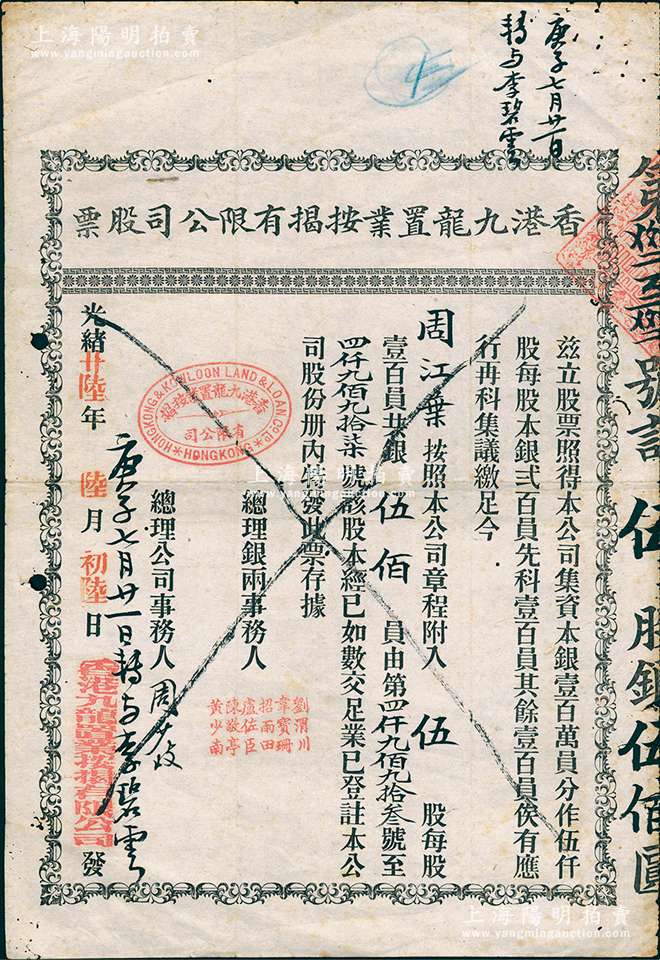 上海陽明拍賣
www.yangmingauction.com
上海陽明拍賣
www.yangmingauction.com
庚子七月廿一日
轉与李碧雲
香港九龍置業按揭有限公司股票
號註 伍 股銀伍佰圓
茲立股票照得本公司集資本銀壹百萬員分作伍仟
股每股本銀弍百員先科壹百員其餘壹百員俟有應
行再科集議繳足今
周江葉 按照本公司章程附入 伍 股每股
壹百員共銀 伍佰 員由第四仟九佰九拾叁號至
四仟九佰九拾柒號該股本經已如數交足業已登註本公
司股份册內特發此票存據
總理銀兩事務人
劉渭川
韋寶珊
招雨田
盧佐臣
陳敬亭
黃少南
總理公司事務人 周
庚子七月廿一日轉与李碧雲
光緒廿陸年 陸月 初陸日 香港九龍置業按揭有限公司 發
HONGKONG & KOWLOON LAND & LOAN CO LD
HONGKONG
香港九龍置業按揭
有限公司
上海陽明拍賣
www.yangmingauction.com